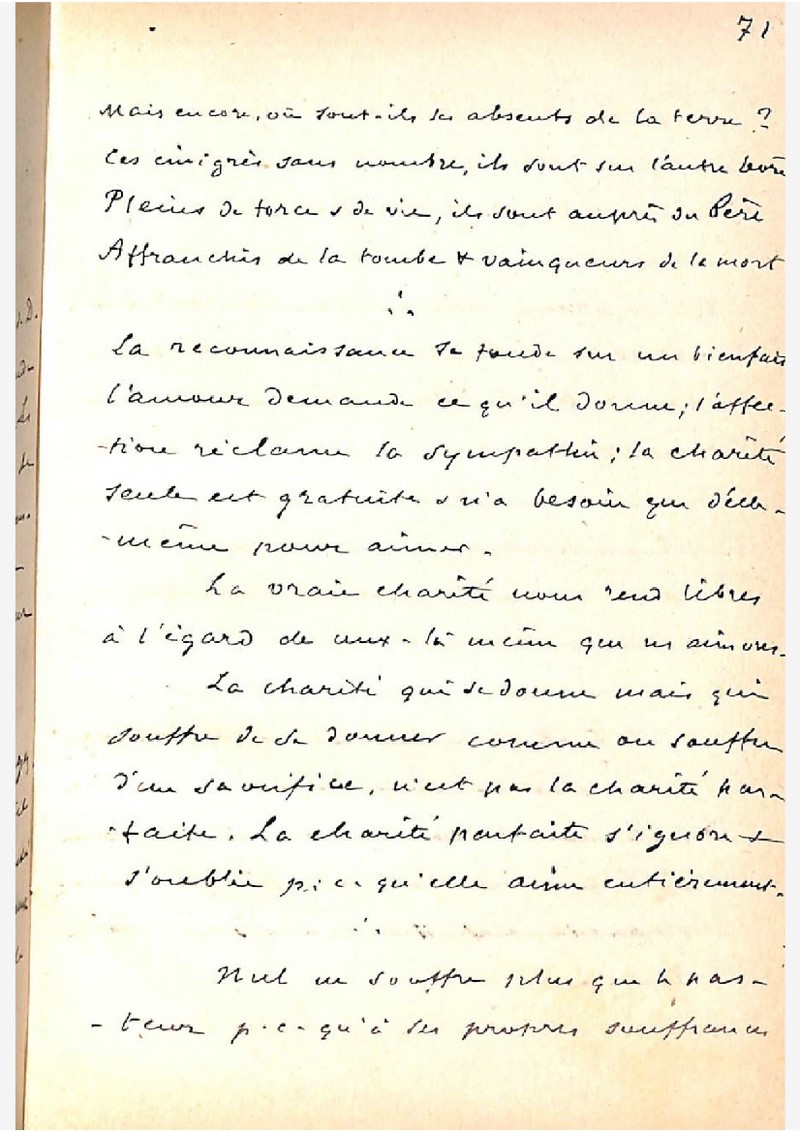 71
Mais encore, où sont-ils les absents de la terre ?
Ces émigrés sans nombre, ils sont sur l'autre bord
Pleins de force & de vie, ils sont auprès du Père
Affranchis de la tombe & vainqueurs de la mort
∴
La reconnaissance se fonde sur un bienfait
l'amour demande ce qu'il donne ; l'affec-
-tion réclame la sympathie ; la charité
seule est gratuite & n'a besoin que d'elle-
-même pour aimer.
La vraie charité nous rend libres
à l'égard de ceux-là même que ns aimons.
La charité qui se donne mais qui
souffre de se donner comme on souffre
d'un sacrifice, n'est pas la charité par-
-faite. La charité parfaite s'ignore &
s'oublie p.c.q. qu'elle aime entièrement.
∴
Nul ne souffre plus que le pas-
-teur p.c.qu'à ses propres souffrances